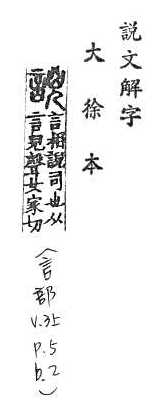 說文解字
大徐本
誽 言相說司也从
言兒聲女家切
(言部 V.3上 P.5 b.2)